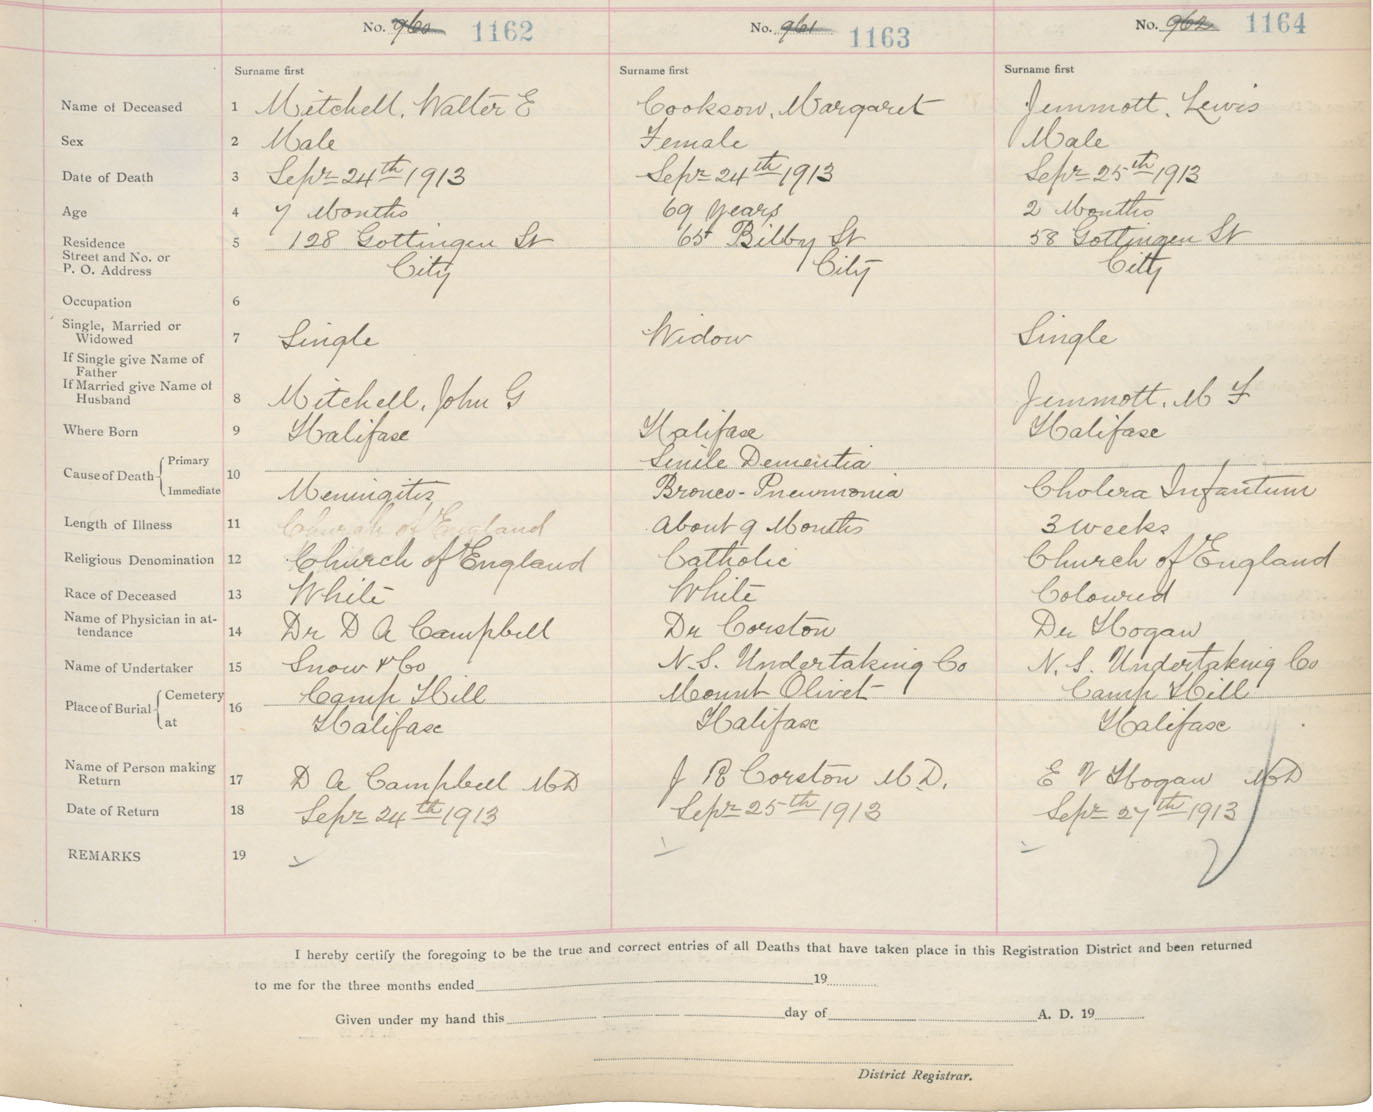 No. 960 1162 No. 961 1163 No. 962 1164
Surname first Surname first Surname first
Name of Deceased 1 Mitchell, Walter E Cookson, Margaret Jemmott, Lewis
Sex 2 Male Female Male
Date of Death 3 Sepr 24th 1913 Sepr 24th 1913 Sepr 25th 1913
Age 4 7 Months 69 years 2 Months
Residence 5 128 Gottingen St 65 Bilby St 58 Gottingen St
Street and No. or
P. O. Address City City City
Occupation 6
Single, Married or
Widowed 7 Single Widow Single
If Single give Name of
Father
If Married give Name of
Husband 8 Mitchell, John G Jemmott, M F
Where Born 9 Halifax Halifax Halifax
Cause of Death Primary 10 Senile Dementia
Immediate Meningitis Bronco-Pneumonia Cholera Infantum
Length of Illness 11 Church of England About 9 Months 3 weeks
Religious Denomination 12 Church of England Catholic Church of England
Race of Deceased 13 White White Coloured
Name of Physician in at-
tendance 14 Dr D A Campbell Dr Corston Dr Hogan
Name of Undertaker 15 Snow & Co N.S. Undertaking Co N.S. Undertaking Co
Place of Burial Cemetery 16 Camp Hill Mount Olivet Camp Hill
at Halifax Halifax Halifax
Name of Person making
Return 17 D A Campbell MD J R Corston M.D. E V Hogan MD
Date of Return 18 Sepr 24th 1913 Sepr 25th 1913 Sepr 27th 1913
REMARKS 19
I hereby certify the foregoing to be the true and correct entries of all Deaths that have taken place in this Registration District and been returned
to me for the three months ended 19
Given under my hand this day of A. D. 19
District Registrar.